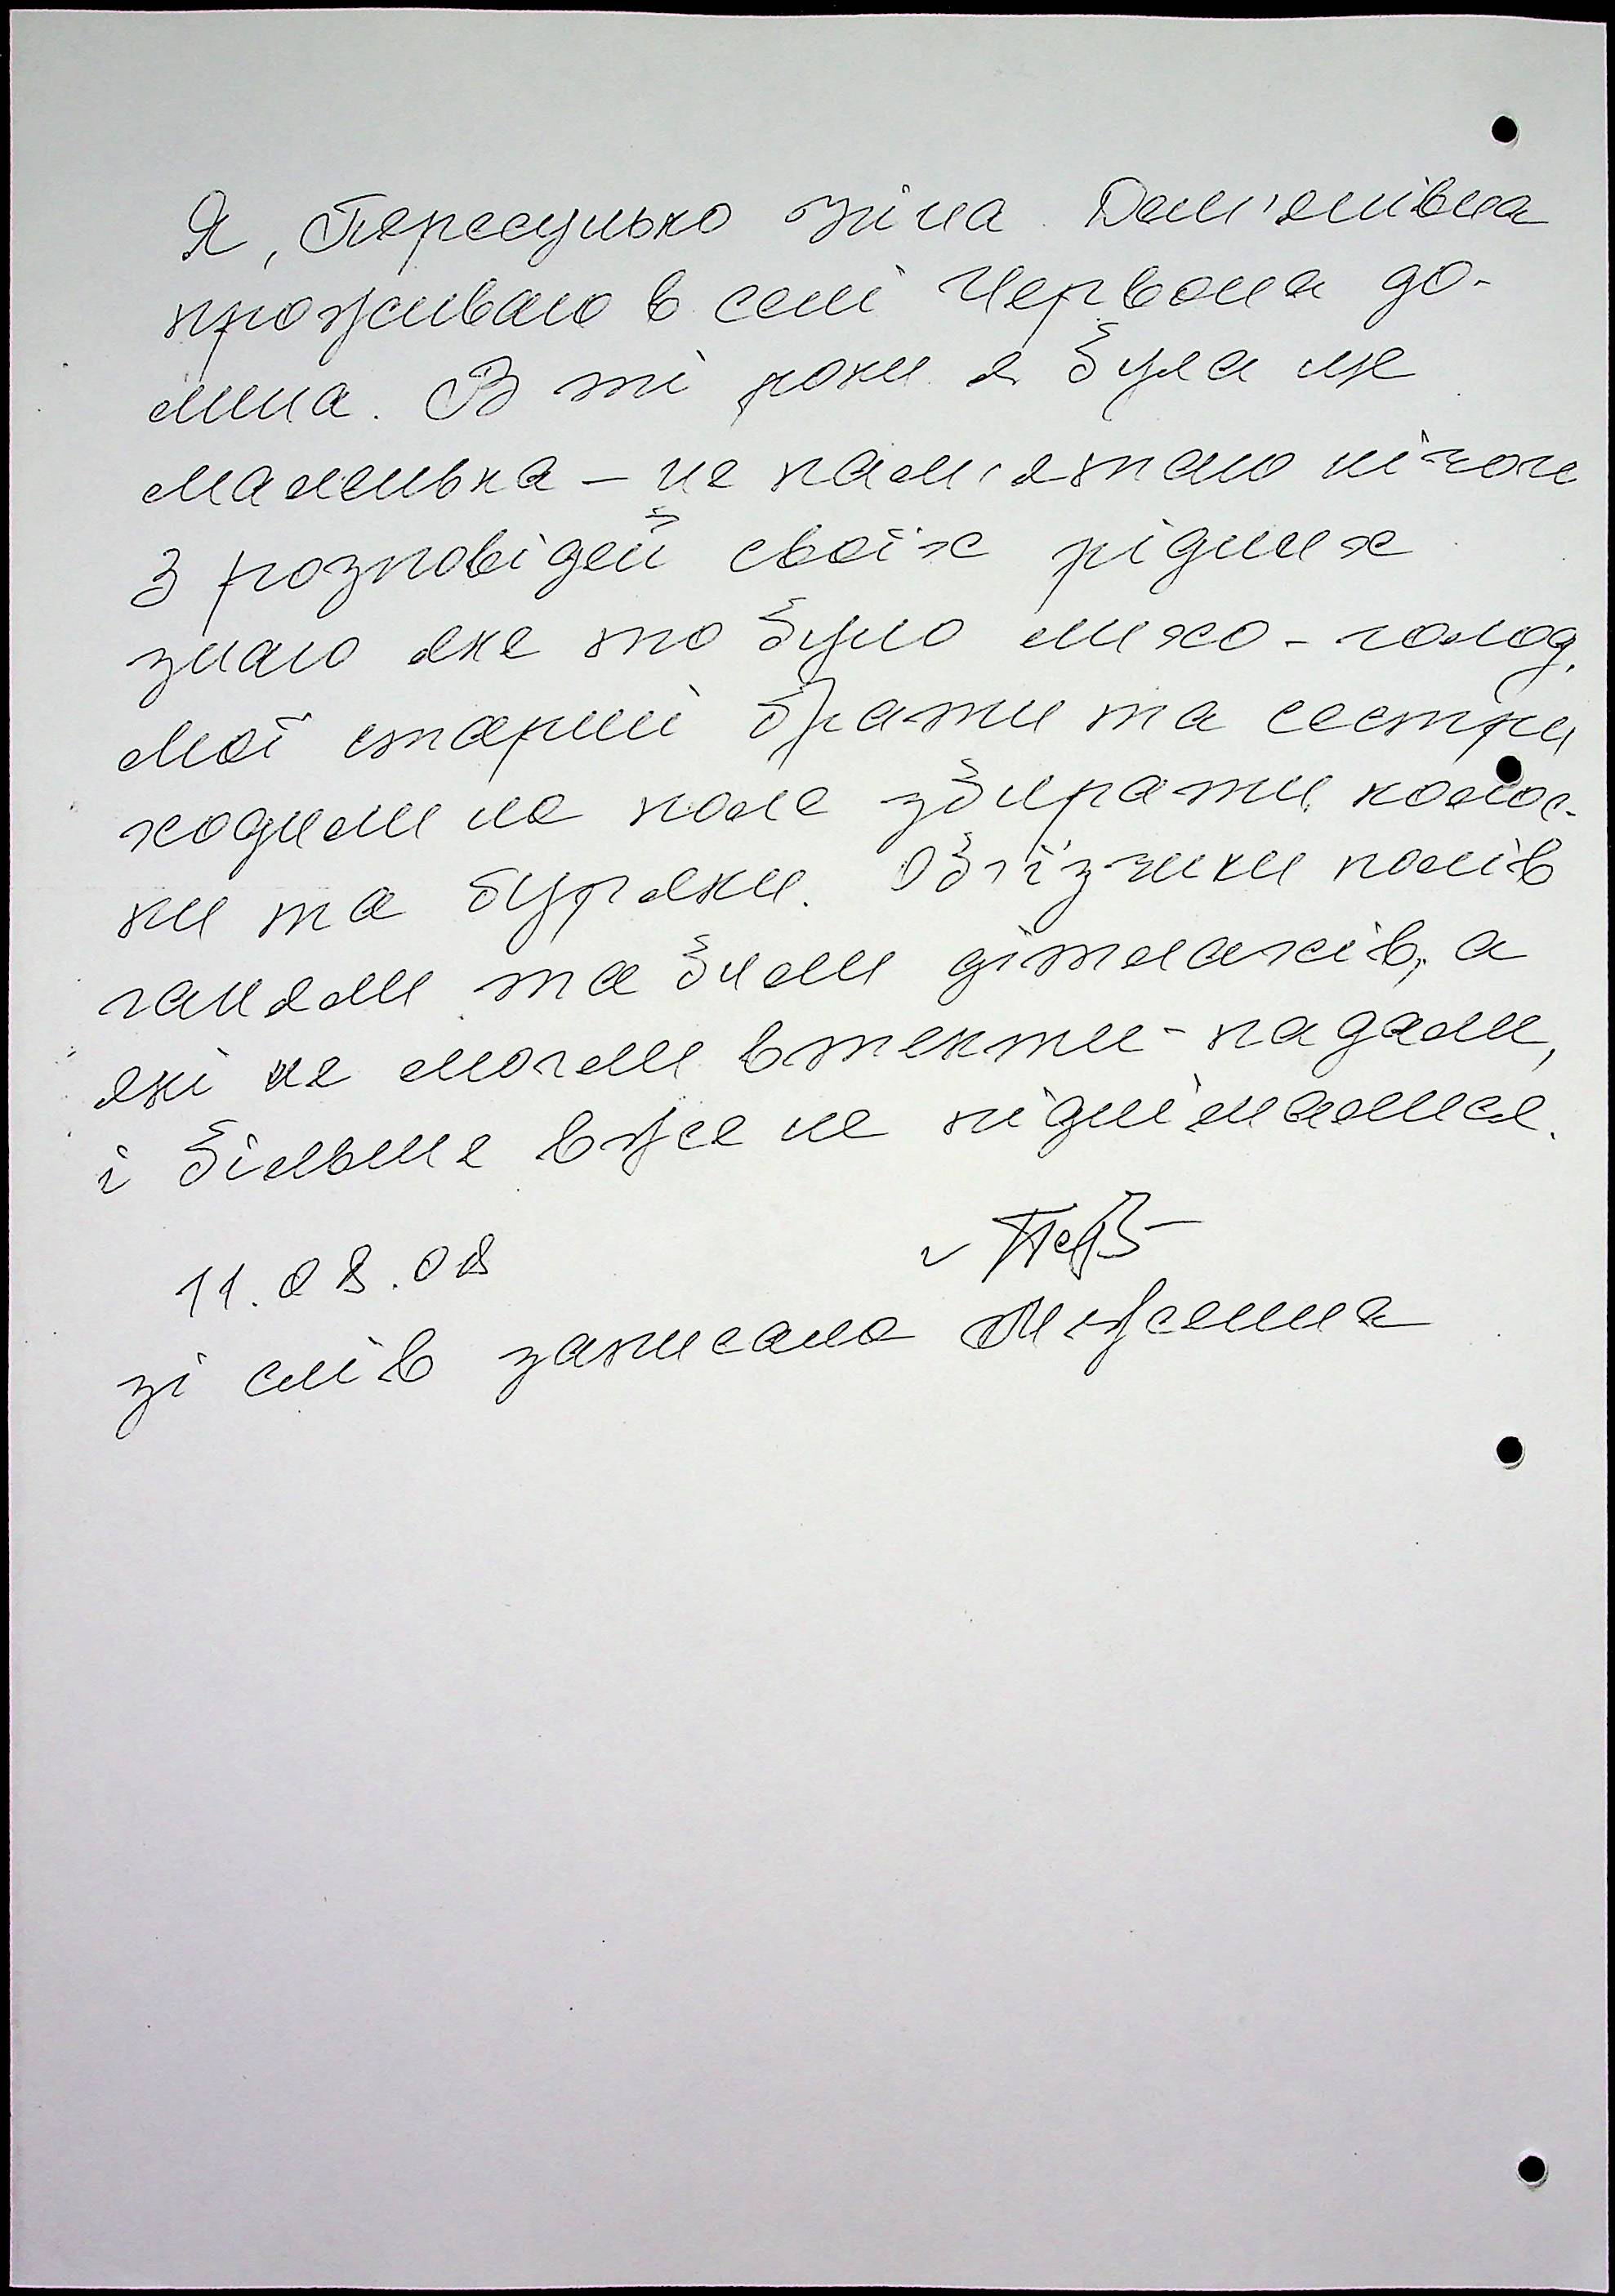 Я, Пересунько Зіна Дем'янівна
проживаю в селі Червона до-
лина. В ті роки я була ще
маленька – не пам'ятаю нічого
З розповідей своїх рідних
знаю яке то було лихо - голод.
Мої старші брати та сестри
ходили на поле збирати колос-
ки та буряки. Об'їзчики полів
ганяли та били дітлахів, а
які не могли втекти - падали,
і більше вже не піднімалися.
11.08.08
зі слів записала